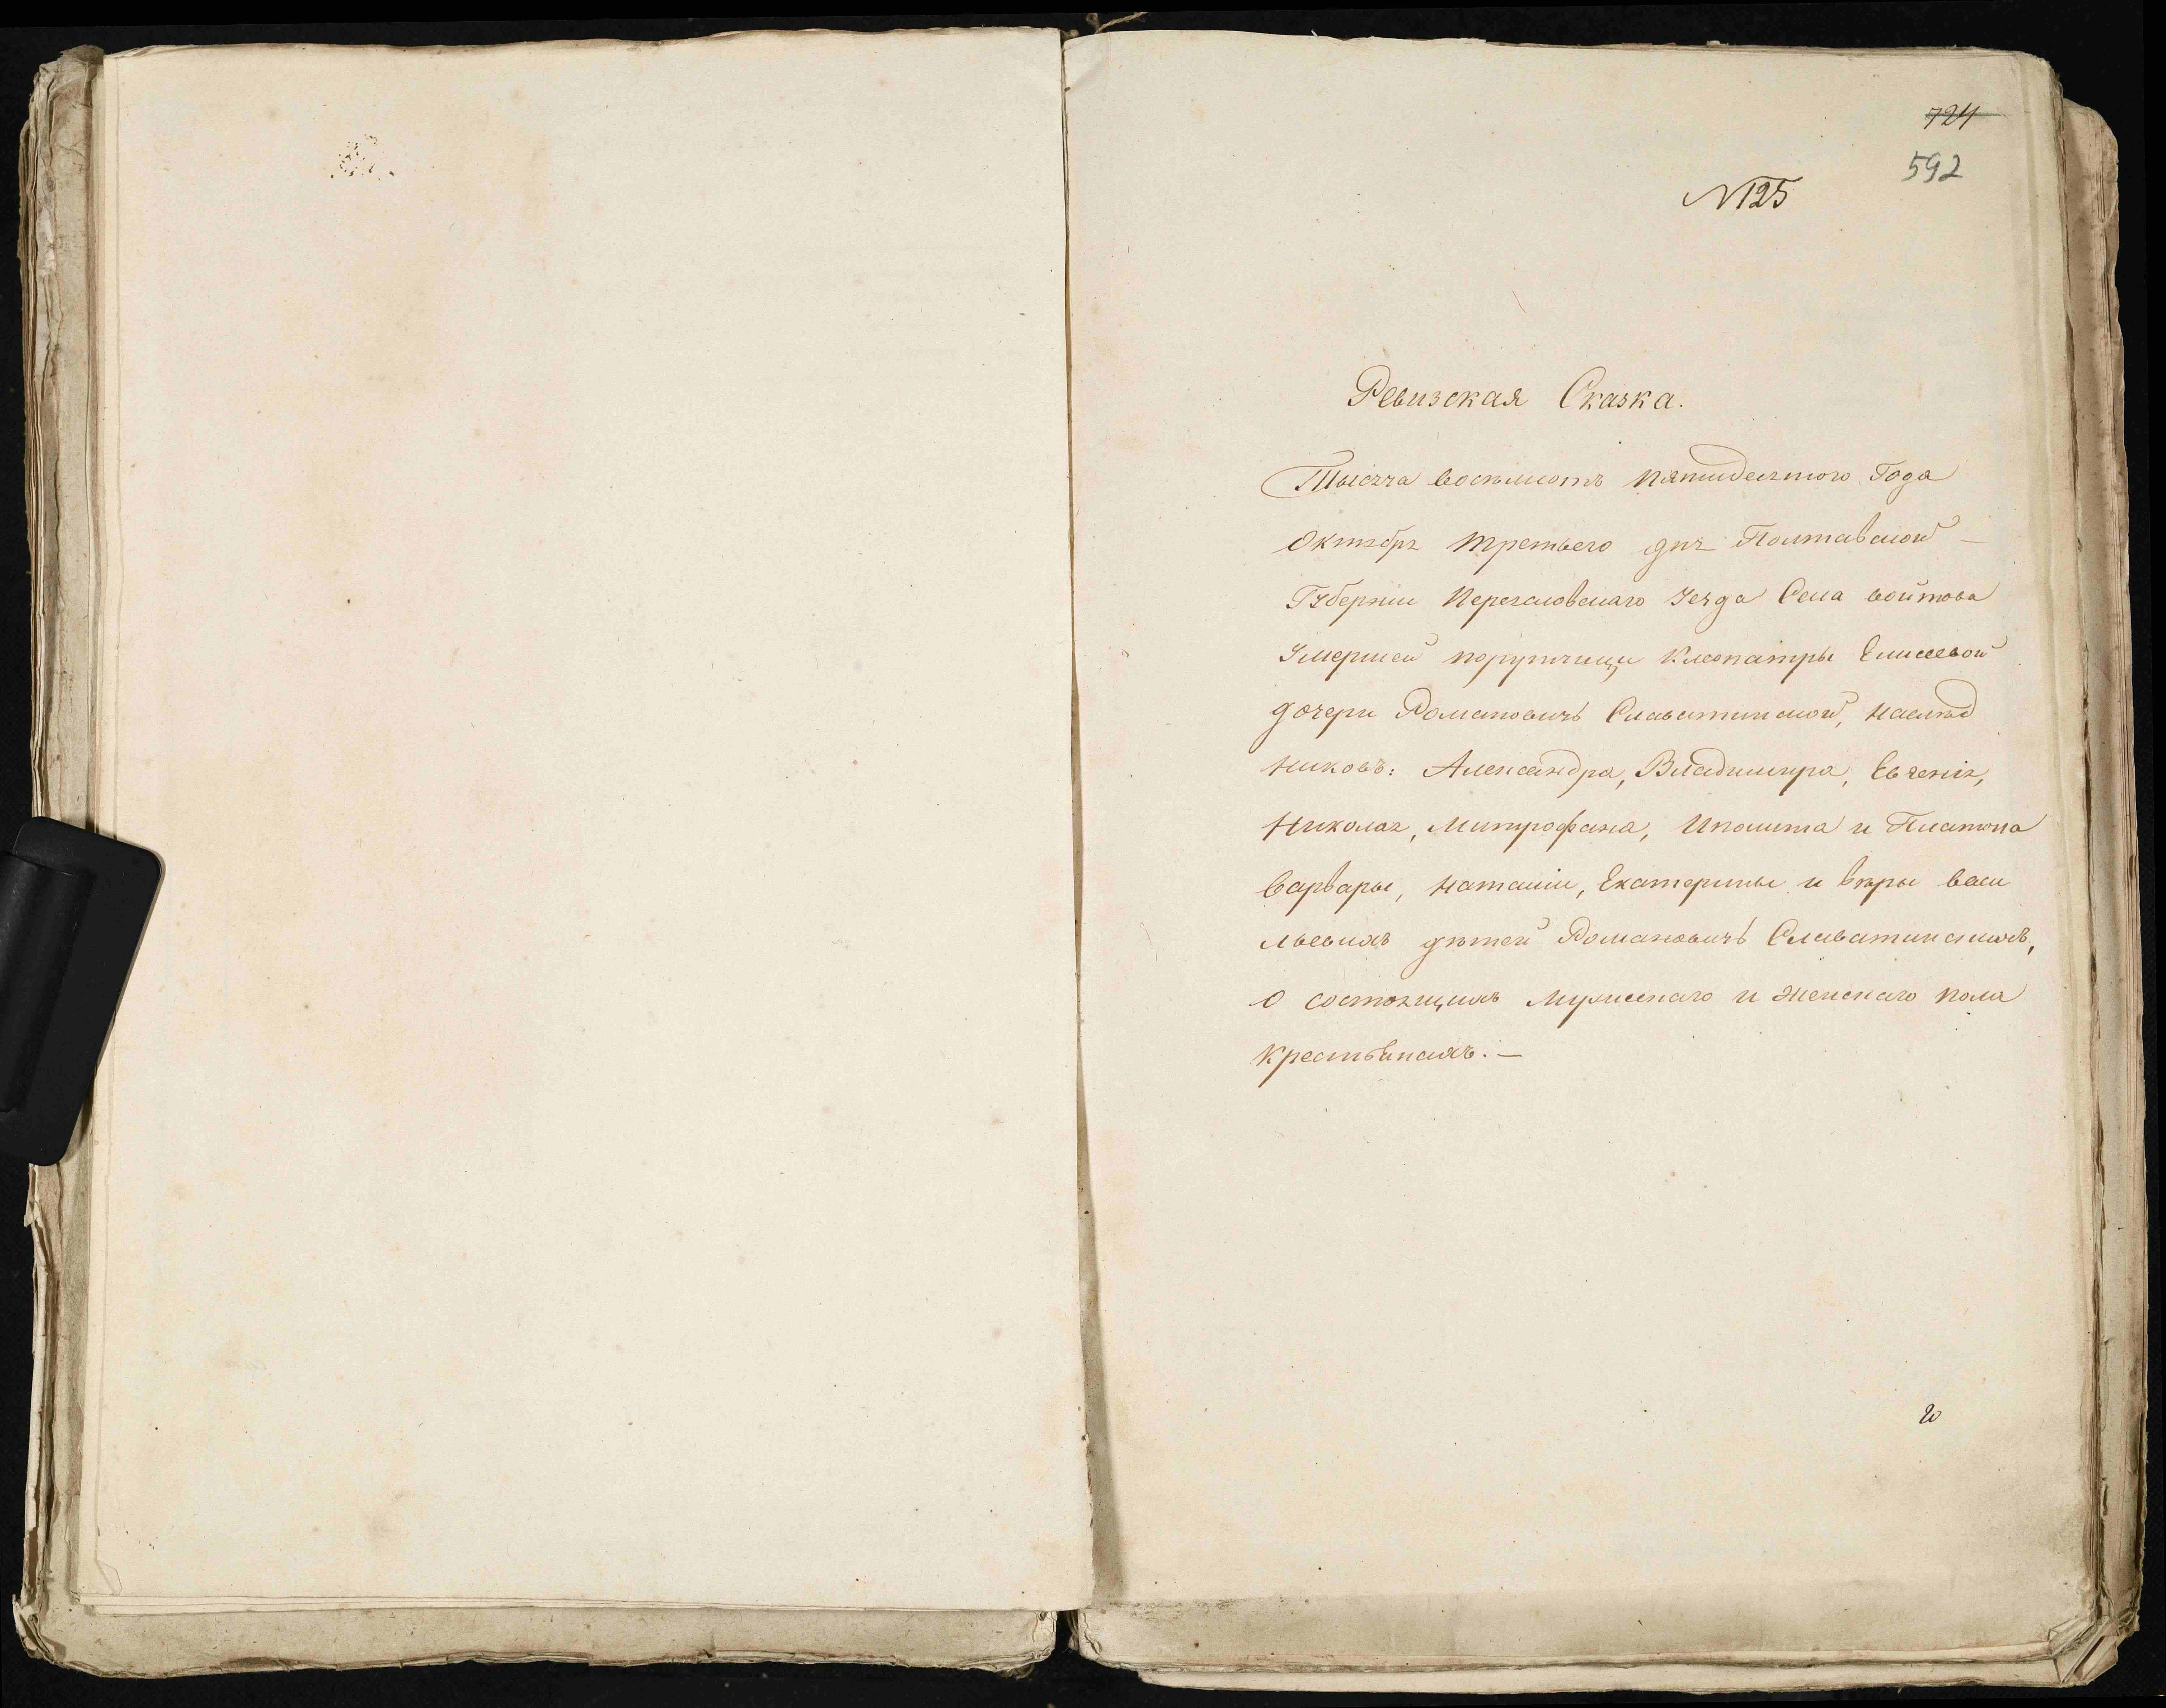 724
592
N125
Ревизская Сказка.
Тысяча восемьсотъ пятидесятого Года
Октября третьего дня Полтавской –
Губернии Переясловскаго Уезда Села войтова
Умершей порутчицы Клеопатры Елисеевой
дочери Романовичъ Славатинской, наслѣд
никовъ: Александра, Владимира, Евгенія,
Николая, Митрофана, Иполита и Платона
Варвары, Наталіи, Екатерины и вѣры васи
льевихъ дѣтей Романовичъ Славатинскихъ,
О состоящихъ Мужескаго и Женскаго пола
крестьянахъ. –